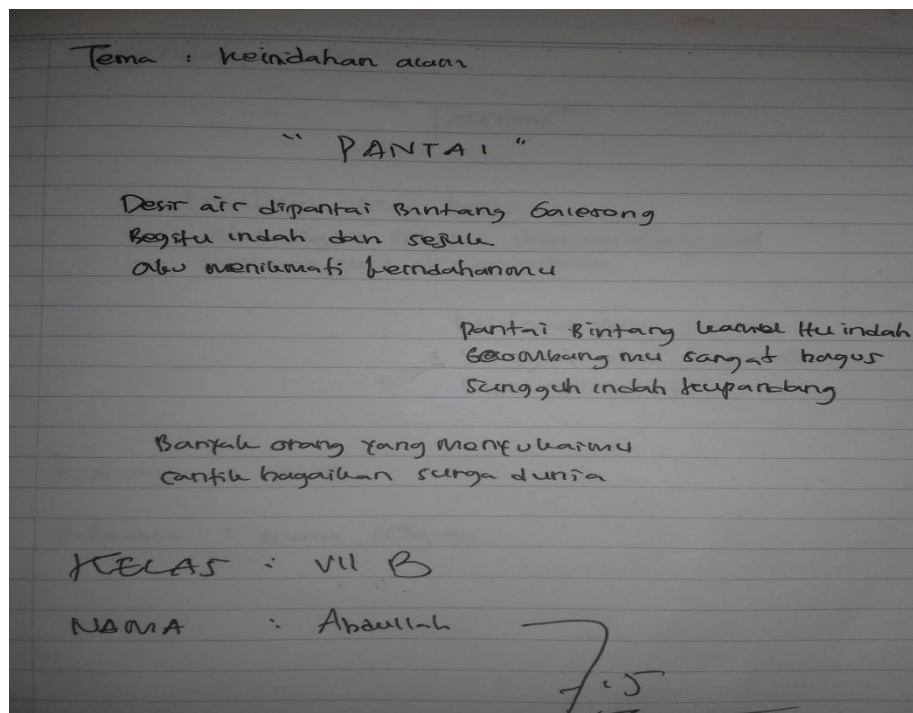 Tema : keindahan alam
" PANTAI "
Desir air dipantai Bintang Galesong
Begitu indah dan sejuk
aku menikmati keindahanmu
Pantai Bintang kamu itu indah
Gelombang mu sangat bagus
Sungguh indah kupandang
Banyak orang yang menyukaimu
cantik bagaikan surga dunia
KELAS : VII B
NAMA : Abdullah
7.5